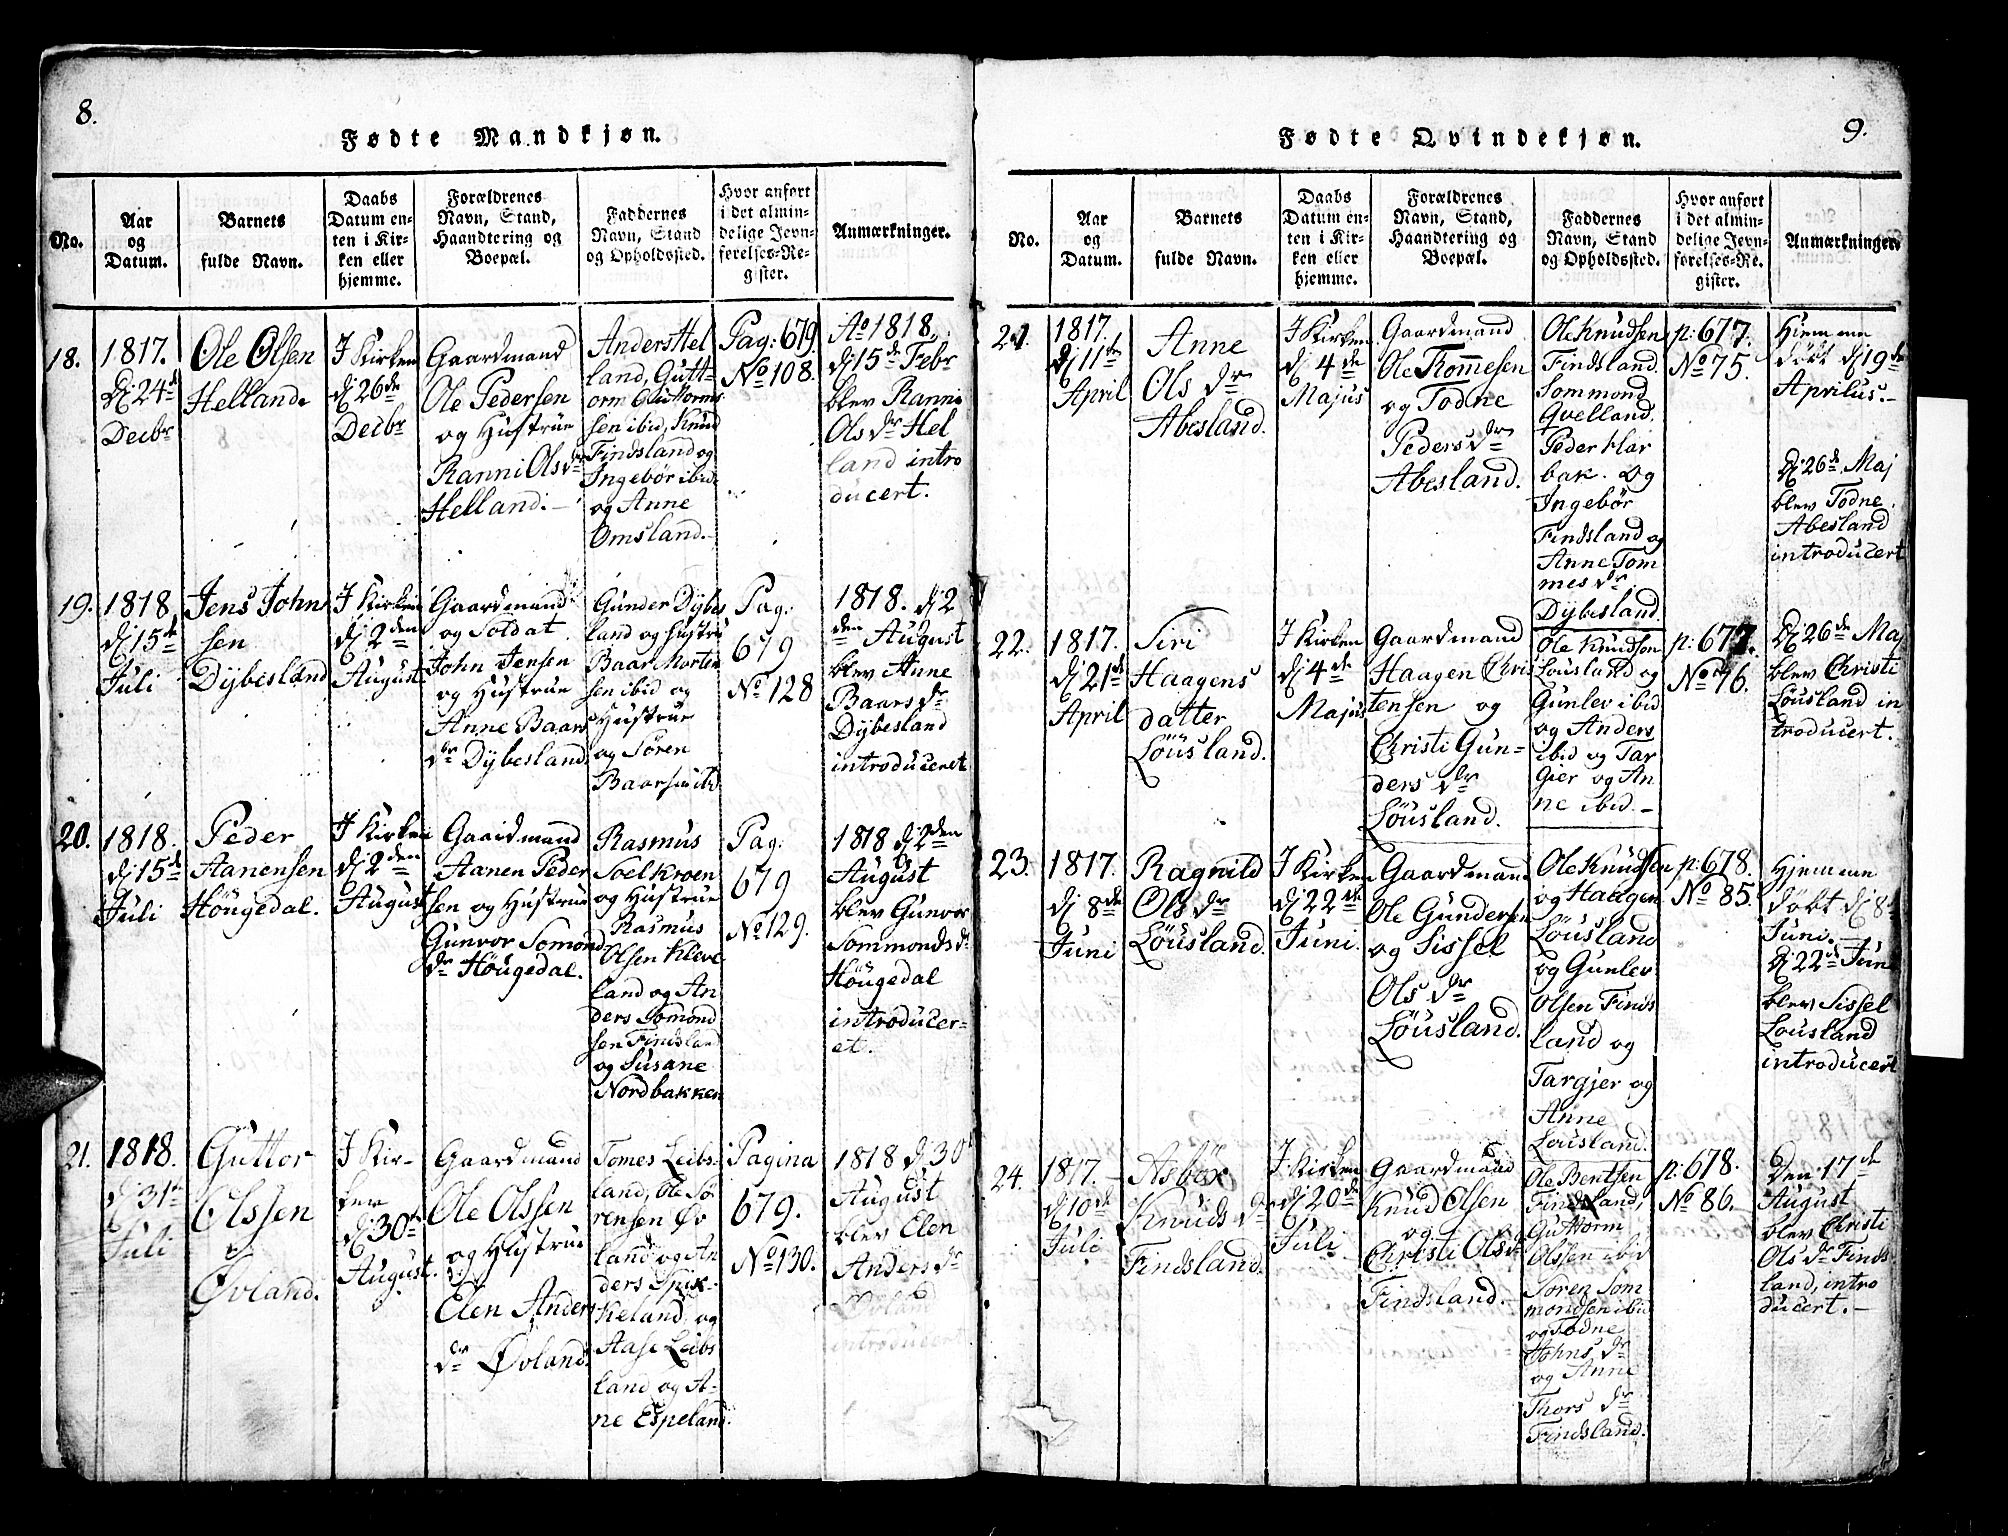 8.
Fødte Mandkjøn.
No.
Aar
og
Datum.
Barnets
fulde Navn.
Daabs
Datum en-
ten i Kir-
ken eller
hjemme.
Forældrenes
Navn, Stand,
Haandtering og
Boepæl.
Faddernes
Navn, Stand
og Opholdssted.
Hvor anført
i det almin-
delige Jevn-
førelses-Re-
gister.
Anmærkninger.
18.
1817.
D/ 24d
Decbr
Ole Olsen
Helland.
I Kirken
d/ 26de
Decbr
Gaardmand
Ole Pedersen
og Hustrue
Ranni Ols dr
Helland.-
Anders Hel
land, Gutt-
orm Guttorms
sen ibid, Knud
Findsland og
Ingebør ibid
og Anne
Omsland.-
Pag: 679.
No 108.
Ao 1818,
d/ 15de Febr
blev Ranni
Ols dr Hel
land intro
ducert.
19.
1818
d/ 15de
Juli
Jens John
sen
Dybesland
I Kirken
d/ 2den
August
Gaardmand
og Soldat
John Jensen
og Hustrue
Anne Baars
dr Dybesland.
Gunder Dybes
land og Hustru
Baar Morten
sen ibid og
Hustrue
og Søren
Baarsen ibid
Pag:
679
No 128
1818. d/ 2
den August
blev Anne
Baars dr
Dybesland
introduceret
20.
1818.
d/ 15de
Juli
Peder
Aanensen
Høugedal.
I Kirken
d/ 2den
August
Gaardmand
Aanen Peder
sen og Hustrue
Gunvor Somond
dr Høugedal.
Rasmus
Soelkroen
og Hustrue
Rasmus
Olsen Kleve
land og An
ders Somond
sen Findsland
og Susane
Nordbakken
Pag:
679
No 129.
1818 d/ 2den
August
blev Gunvor
Sommonds dr
Høugedal
introducer-
et.
21.
1818.
d/ 31te
Juli
Guttor
Olssen
Øvland.
I Kir-
ken
d/ 30te
August.
Gaardmand
Ole Olssen
og Hustrue
Elen Anders
dr Øvland.
Tomes Leibs-
land, Ole Sø
rensen Øv
land og An
ders Spik-
keland, og
Aase Leibs
land og A-
ne Espeland.
Pagina
679.
No 130.
1818 d. 30t
August
blev Elen
Anders dr
Øvland
introducert
9.
Fødte Qvindekjøn.
No.
Aar
og
Datum.
Barnets
fulde Navn.
Daabs
Datum en-
ten i Kir-
ken eller
hjemme.
Forældrenes
Navn, Stand,
Haandtering og
Boepæl.
Faddernes
Navn, Stand
og Opholdssted.
Hvor anført
i det almin-
delige Jevn-
førelses-Re-
gister.
Anmærkninger.
21.
1817.
d/ 11de
April
Anne
Ols dr
Abesland.
I Kirken
d/ 4de
Majus
Gaardmand
Ole Tommesen
og Todne
Peders dr
Abesland.
Ole Knudsen
Findsland.
Sommond
Qvelland.
Peder Klar
bak. og
Ingebør
Findsland og
Anne Tom
mes dr
Dybesland.
p: 677.
No 75.
Hjemme
døbt d/ 19de
Aprilus.-
D/ 26de Maj
blev Todne
Abesland
introducert
22.
1817.
d/ 21de
April
Siri
Haagens
datter
Løusland.
I Kirken
d/ 4de
Majus
Gaardmand
Haagen Chris
tensen og
Christi Gun-
ders dr
Løusland.
Ole Knudsen
Løusland og
Gunlev ibid
og Anders
ibid og Tar
gier og An
ne ibid.-
p: 677.
No 76.
D/ 26de Maj
blev Christi
Løusland in
troducert.
23.
1817.
d/ 8de
Juni
Ragnild
Ols dr
Løusland.
I Kirken
d/ 22de
Juni.
Gaardmand
Ole Gundersen
og Sissel
Ols dr
Løusland.
Ole Knudsen
og Haagen
Løusland
og Gunlev
Olsen Finds
land og
Targjer og
Anne
Lousland.
p: 678.
No 85.
Hjemme
døbt d/ 8de
Juni.
D/ 22de Juni
blev Sissel
Lousland
introducert
24.
1817.
d/ 10de
Juli
Asbør
Knuds dr
Findsland.
I Kirken
d/ 20de
Juli
Gaardmand
Knud Olsen
og
Christi Ols dr
Findsland.
Ole Bentsen
Findsland,
Guttorm
Olssen ibid
Soren Som
mondsen ibid
og Todne
Johns dr
og Anne
Thors dr
Findsland.
p: 678.
No 86.
Den 17de
August
blev Christi
Ols dr Finds
land, intro
ducert.-